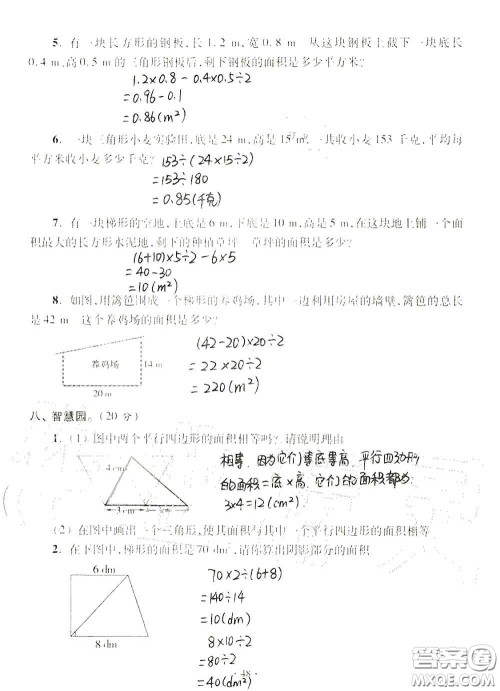 5. 有一块长方形的钢板,长 1.2 m,宽 0.8 m 从这块钢板上截下一块底长
0.4 m,高 0.5 m 的三角形钢板后,剩下钢板的面积是多少平方米?
1.2×0.8-0.4×0.5÷2
=0.96-0.1
=0.86(m²)
6. 一块三角形小麦实验田,底是 24 m,高是 15 m 一共收小麦 153 千克,平均每
平方米收小麦多少千克?
153÷(24×15÷2)
=153÷180
=0.85(千克)
7. 有一块梯形的空地,上底是 6 m,下底是 10 m,高是 5 m,在这块地上铺一个面
积最大的长方形水泥地,剩下的种植草坪 草坪的面积是多少?
(6+10)×5÷2-6×5
=40-30
=10(m²)
8. 如图,用篱笆围成一个梯形的养鸡场,其中一边利用房屋的墙壁,篱笆的总长
是 42 m 这个养鸡场的面积是多少?
(42-20)×20÷2
=22×20÷2
=220(m²)
养鸡场
14 m
20 m
八、智慧园。(20 分)
1. (1) 图中两个平行四边形的面积相等吗? 请说明理由
相等,因为它们等底等高,平行四边形
的面积=底×高,它们的面积都为
3×4=12(cm²)
4 cm
3 cm
(2) 在图中画出一个三角形,使其面积与其中一个平行四边形的面积相等
2. 在下图中,梯形的面积是 70 dm²,请你算出阴影部分的面积
6 dm
8 dm
70×2÷(6+8)
=140÷14
=10(dm)
8×10÷2
=80÷2
=40(dm²)
答案圈
MXQE.COM